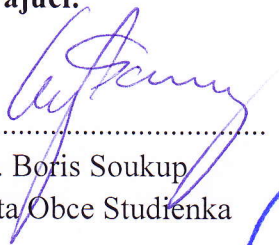 ajúci:
........................................
. Boris Soukup
ta Obce Studienka